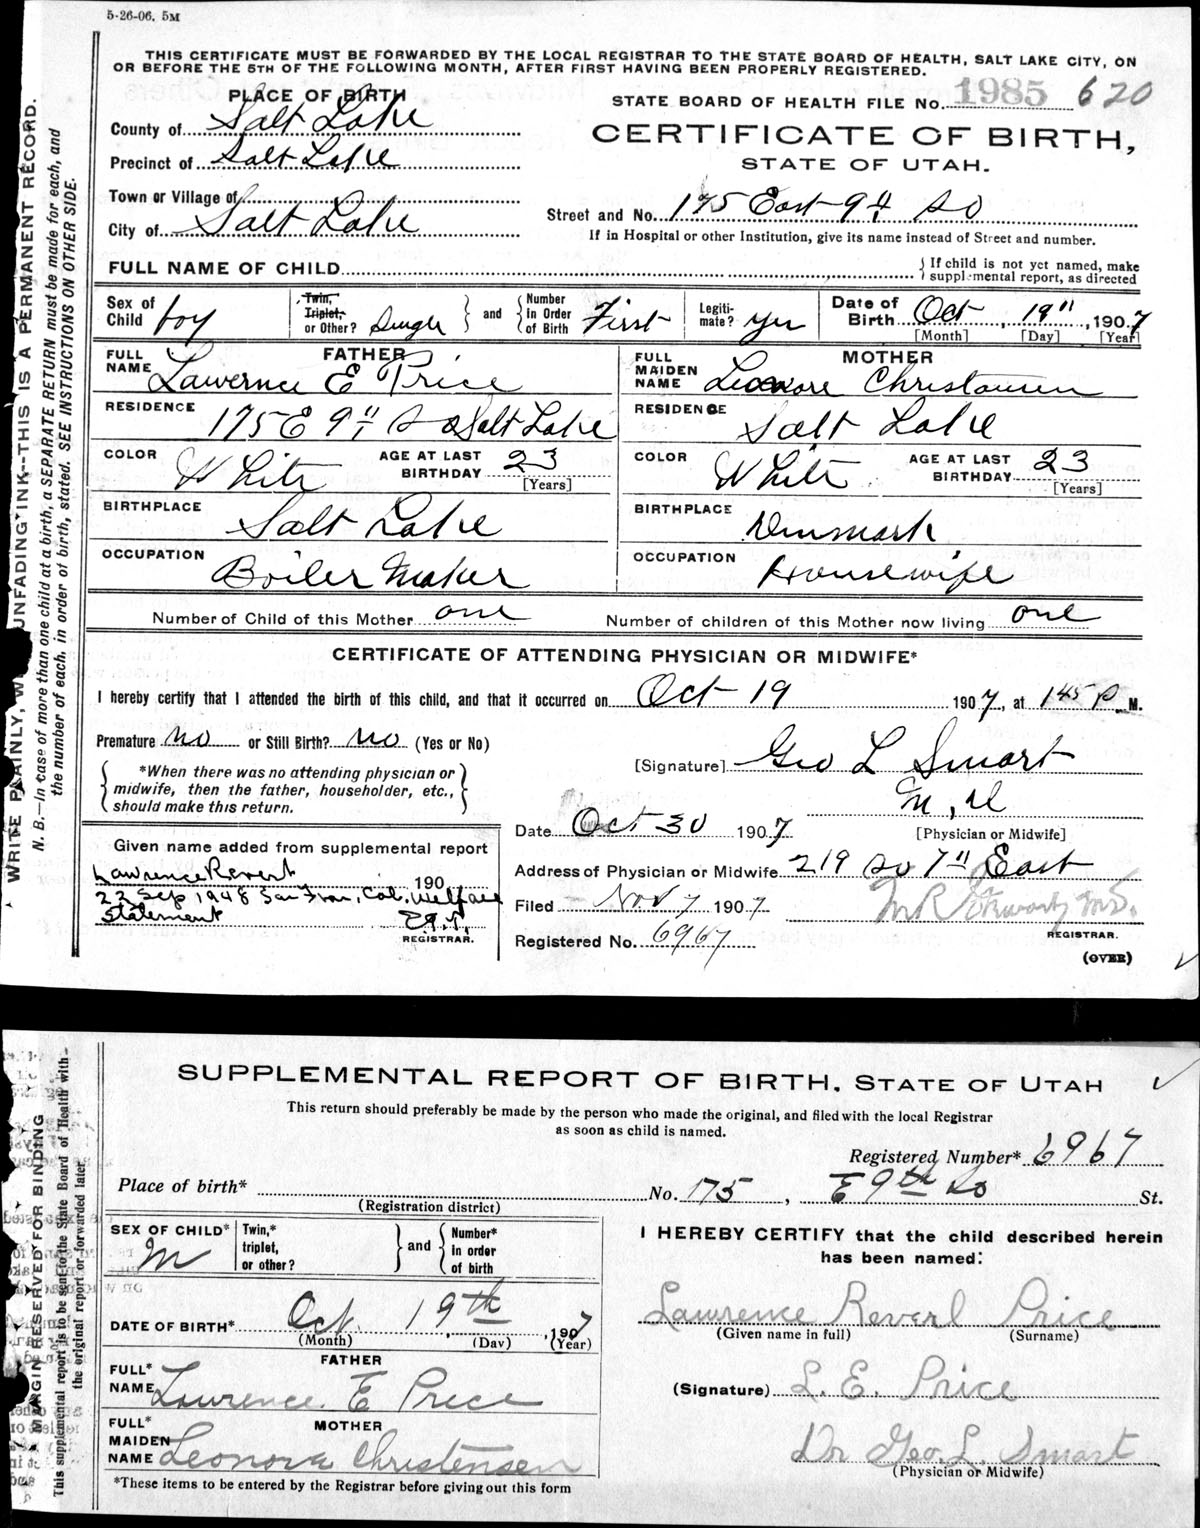 5-26-06. 5M
THIS CERTIFICATE MUST BE FORWARDED BY THE LOCAL REGISTRAR TO THE STATE BOARD OF HEALTH, SALT LAKE CITY, ON
OR BEFORE THE 5TH OF THE FOLLOWING MONTH, AFTER FIRST HAVING BEEN PROPERLY REGISTERED.
PLACE OF BIRTH
STATE BOARD OF HEALTH FILE No. 1985 620
County of Salt Lake
CERTIFICATE OF BIRTH,
Precinct of Salt Lake
STATE OF UTAH.
Town or Village of
Street and No. 175 East 9th So
City of Salt Lake
If in Hospital or other Institution, give its name instead of Street and number.
FULL NAME OF CHILD
If child is not yet named, make
supplemental report, as directed
Sex of Child boy
Twin, Triplet, or Other? Single and Number In Order of Birth First
Legiti-mate? yes
Date of Birth Oct, 19", 1907
[Month] [Day] [Year]
FATHER
FULL NAME Lawernce E Price
MOTHER
FULL MAIDEN NAME Leonore Christensen
RESIDENCE 175 E 9" So Salt Lake
RESIDENCE Salt Lake
COLOR White AGE AT LAST BIRTHDAY 23 [Years]
COLOR White AGE AT LAST BIRTHDAY 23 [Years]
BIRTHPLACE Salt Lake
BIRTHPLACE Denmark
OCCUPATION Boiler Maker
OCCUPATION Housewife
Number of Child of this Mother one
Number of children of this Mother now living one
CERTIFICATE OF ATTENDING PHYSICIAN OR MIDWIFE*
I hereby certify that I attended the birth of this child, and that it occurred on Oct 19 1907, at 1 45 P. M.
Premature no or Still Birth? no (Yes or No)
[Signature] Geo L Smart
M, D
[Physician or Midwife]
*When there was no attending physician or
midwife, then the father, householder, etc.,
should make this return.
Date Oct 30 1907
Given name added from supplemental report
Lawrence Reverl 190
22 Sep 1948 San Fran, Cal. Welfare
Statement
REGISTRAR.
Address of Physician or Midwife 219 So 7" East
Filed Nov 7 1907
REGISTRAR.
Registered No. 6967
(OVER)
WRITE PLAINLY, UNFADING INK--THIS IS A PERMANENT RECORD.
N. B.—In case of more than one child at a birth, a SEPARATE RETURN must be made for each, and
the number of each, in order of birth, stated. SEE INSTRUCTIONS ON OTHER SIDE.
SUPPLEMENTAL REPORT OF BIRTH, STATE OF UTAH
This return should preferably be made by the person who made the original, and filed with the local Registrar
as soon as child is named.
Registered Number* 6967
Place of birth* No. 175, E 9th So St.
(Registration district)
SEX OF CHILD* M
Twin,* triplet, or other? and Number* In order of birth
I HEREBY CERTIFY that the child described herein
has been named:
DATE OF BIRTH* Oct. 19th, 1907
(Month) (Day) (Year)
Lawrence Reverl Price
(Given name in full) (Surname)
FATHER
FULL* NAME Lawrence E Price
(Signature) L. E. Price
MOTHER
FULL* MAIDEN NAME Leonora Christensen
Dr Geo. L. Smart
(Physician or Midwife)
*These items to be entered by the Registrar before giving out this form
MARGIN RESERVED FOR BINDING
This supplemental report is to be sent to the State Board of Health with
the original report or forwarded later.